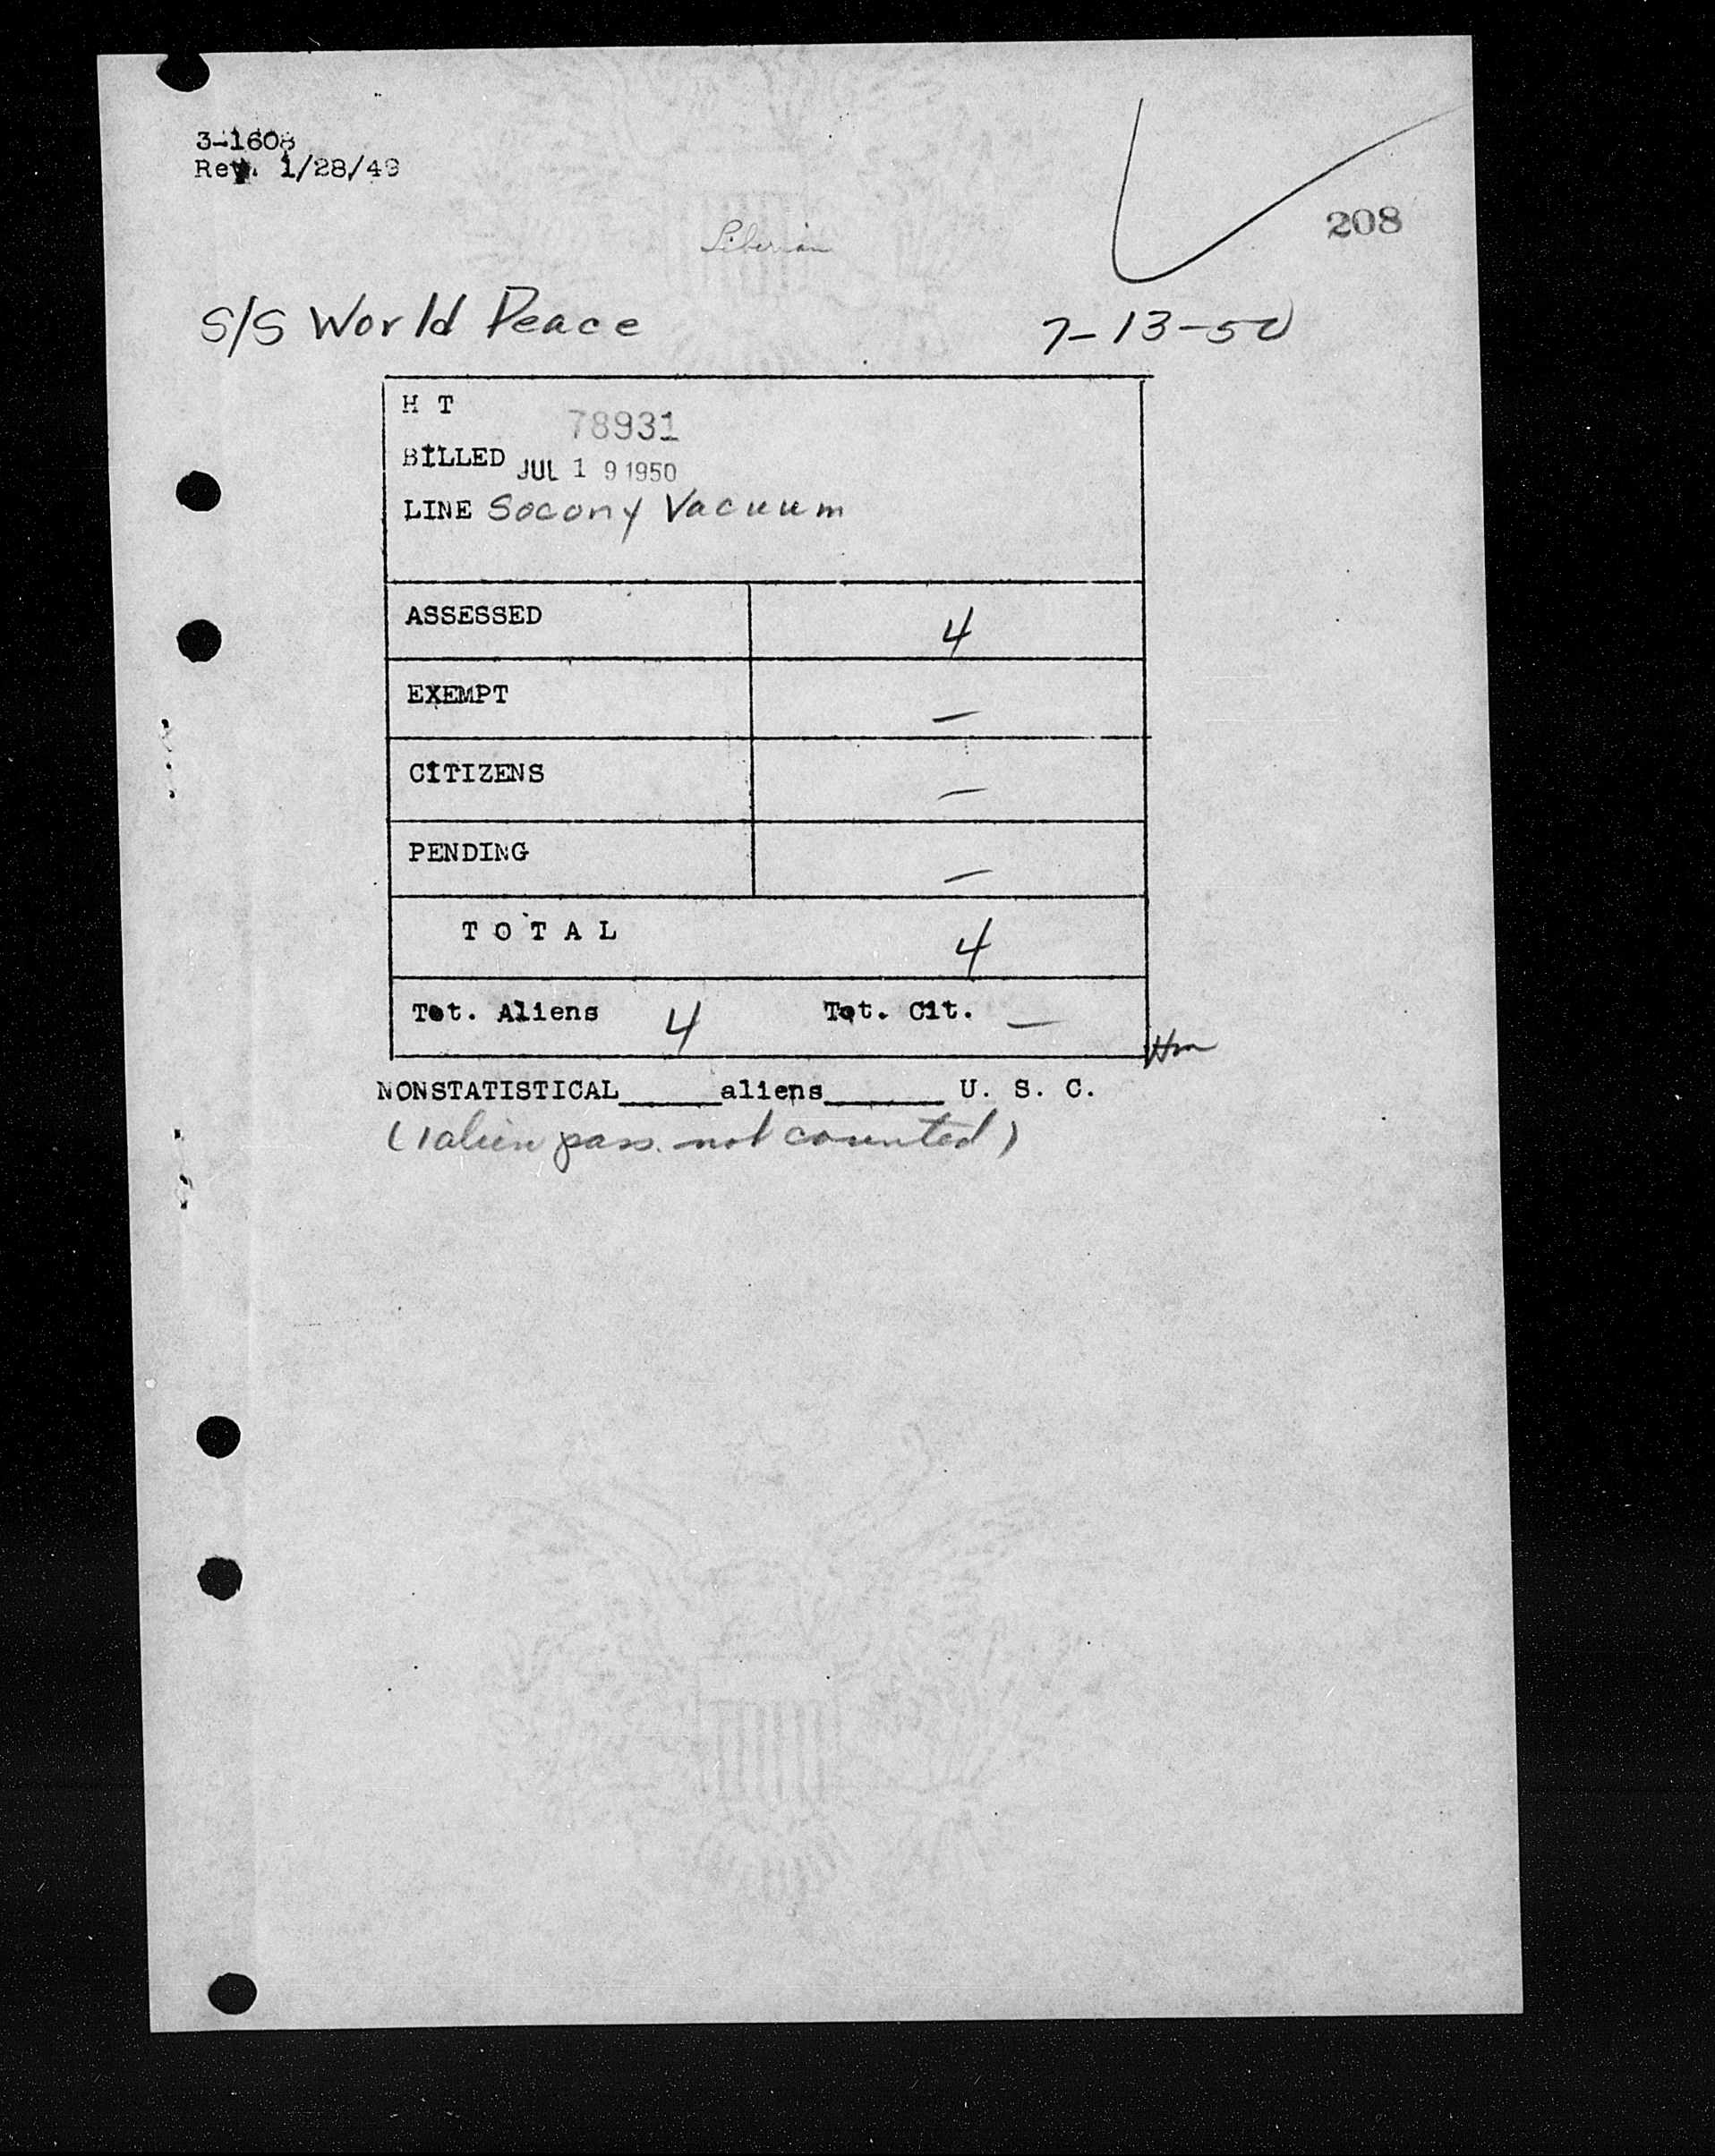 3-1608
Rev. 1/28/49
208
Liberian
S/S World Peace 7-13-50
H T 78931
BILLED JUL 19 1950
LINE Socony Vacuum
ASSESSED 4
EXEMPT —
CITIZENS —
PENDING —
TOTAL 4
Tot. Aliens 4 Tot. Cit. —
NONSTATISTICAL_____aliens______ U. S. C.
(1 alien pass. not counted)